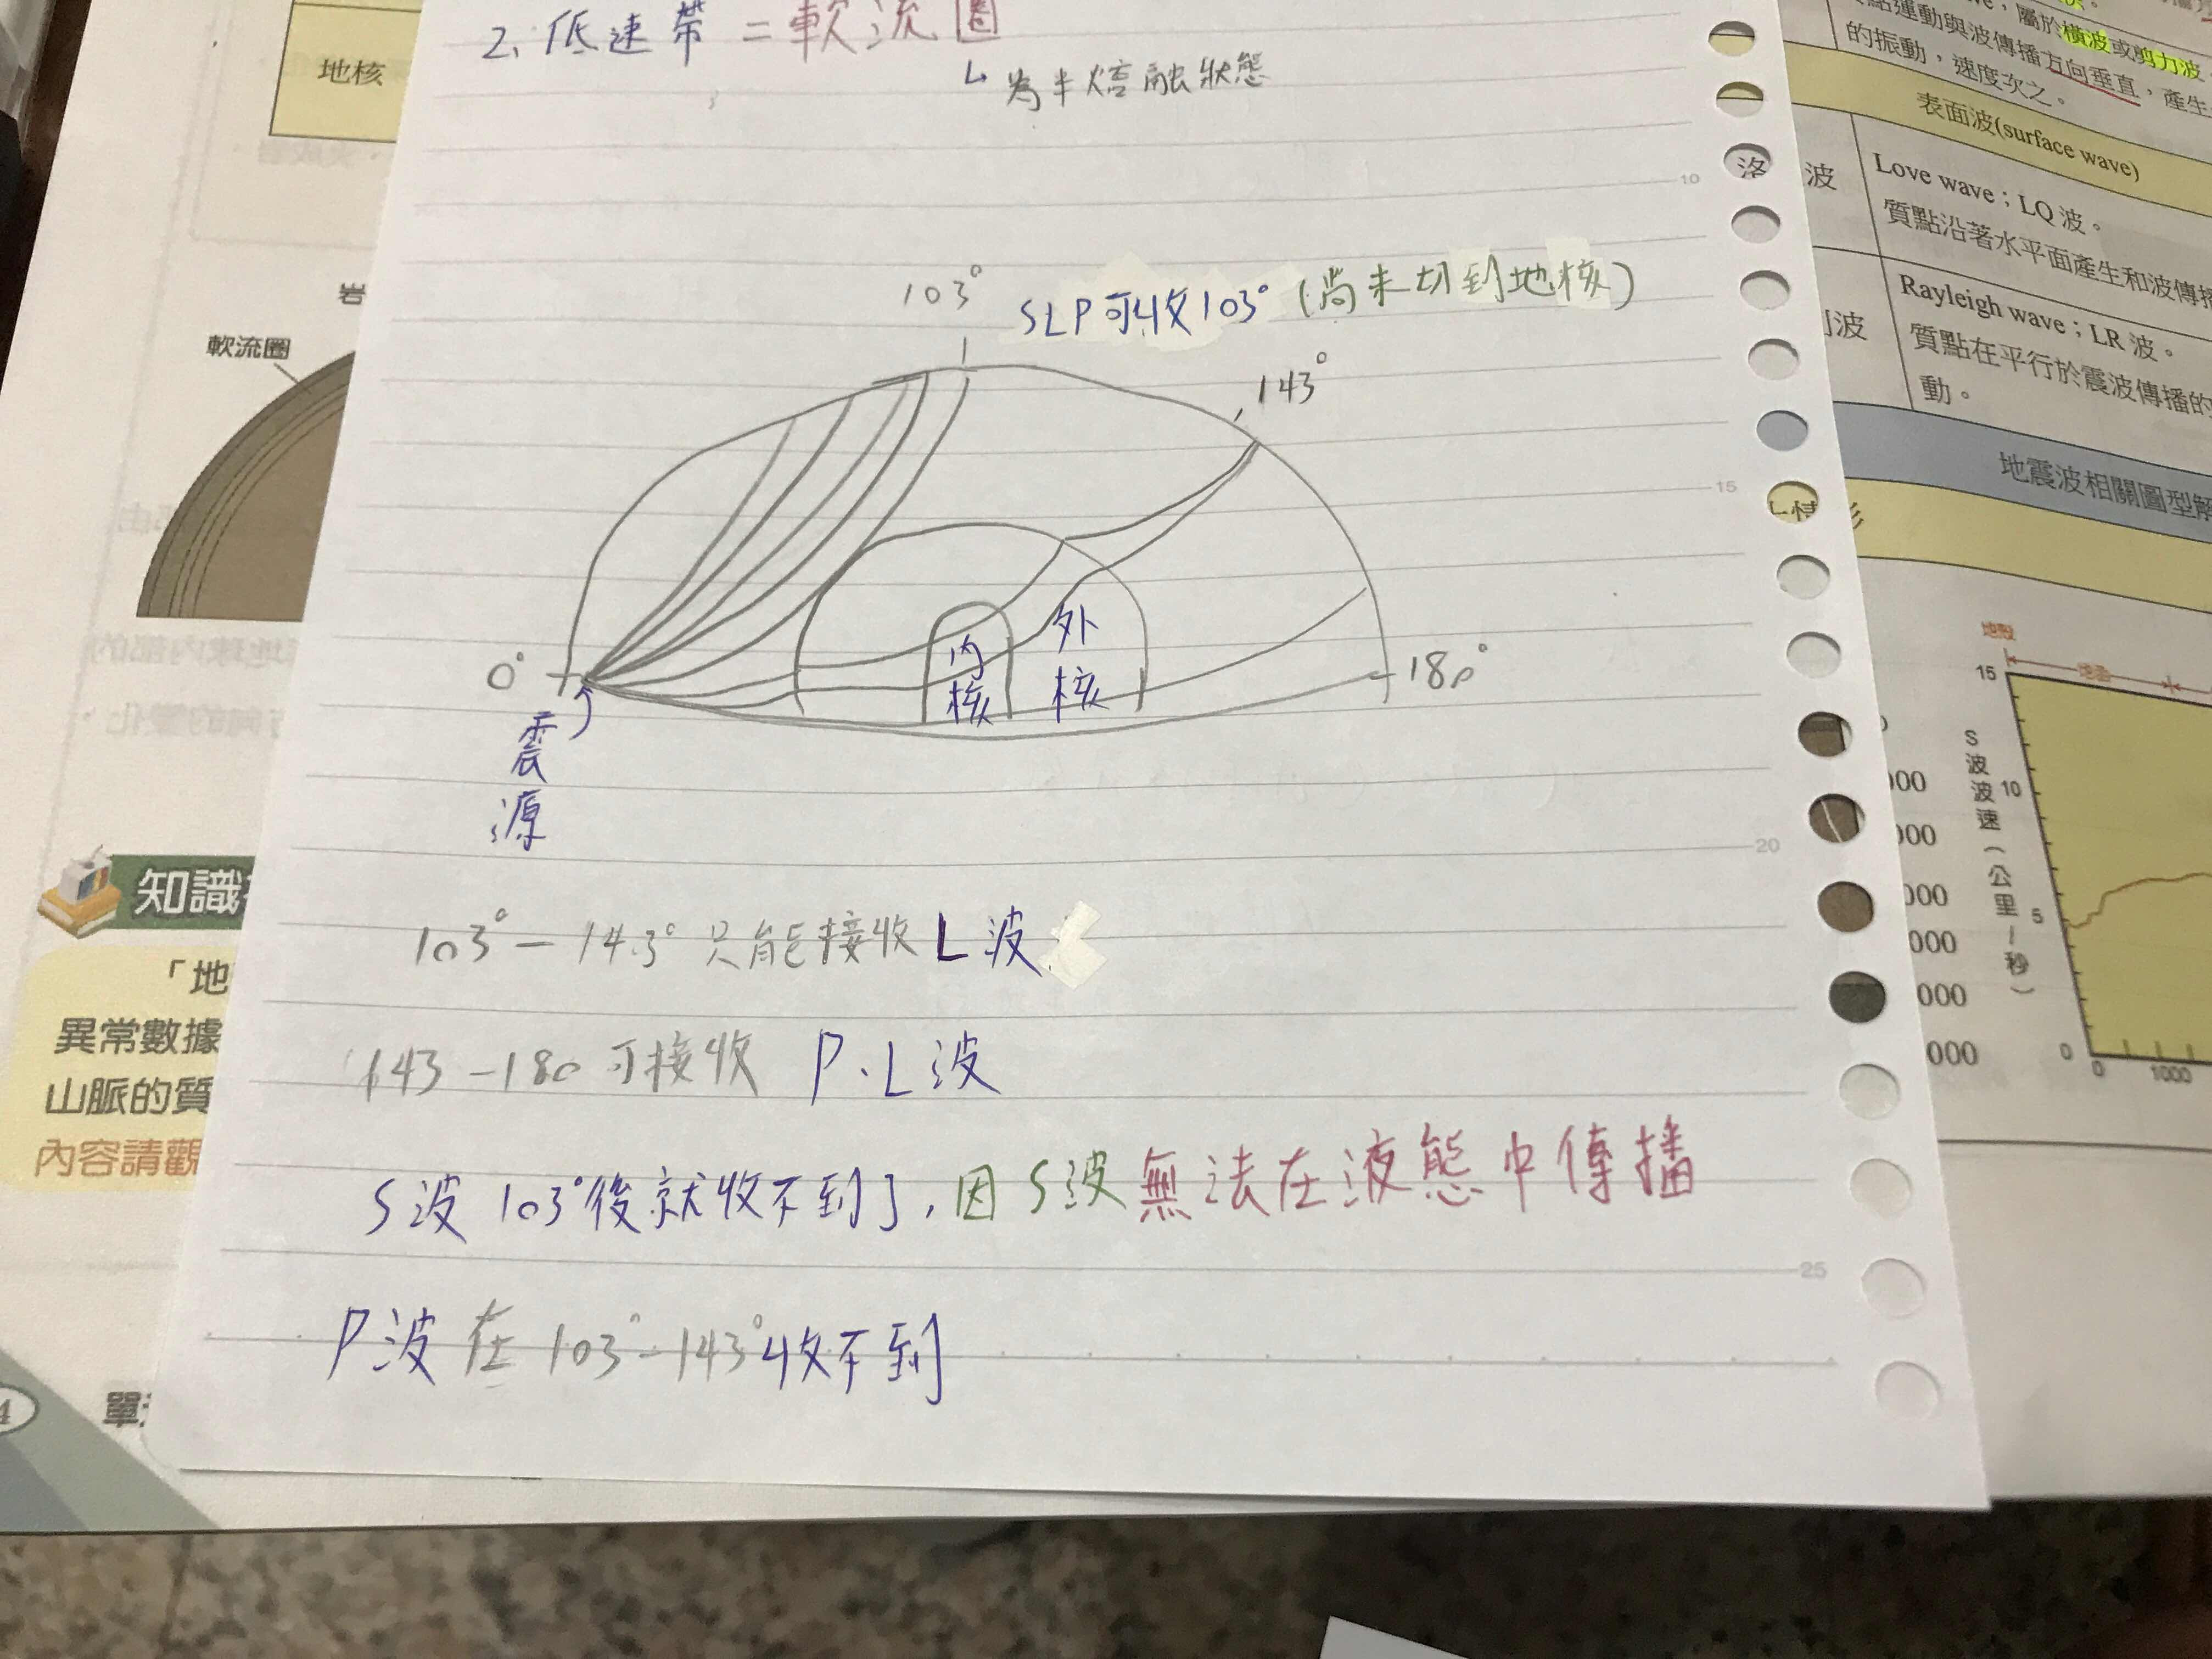 2. 低速帶 = 軟流圈
↳ 為半熔融狀態
103°
SLP可收103° (尚未切到地核)
143°
0°
180°
內核
外核
震源
103° - 143° 只能接收 L 波
143 - 180 可接收 P、L 波
S 波 103°後就收不到了, 因 S 波 無法在液態中傳播
P 波 在 103° - 143° 收不到
10
15
20
25
地核
軟流圈
岩
知識
「地
異常數據
山脈的質
內容請觀
4
屬於橫波或剪力波
點運動與波傳播方向垂直，產生
的振動，速度次之。
表面波(surface wave)
洛
波
Love wave；LQ 波。
質點沿著水平面產生和波傳播
波
Rayleigh wave；LR 波。
質點在平行於震波傳播的
動。
地震波相關圖型解
地殼
地函
S波波速（公里／秒）
15
10
5
0
0
1000
000
000
000
000
000
000